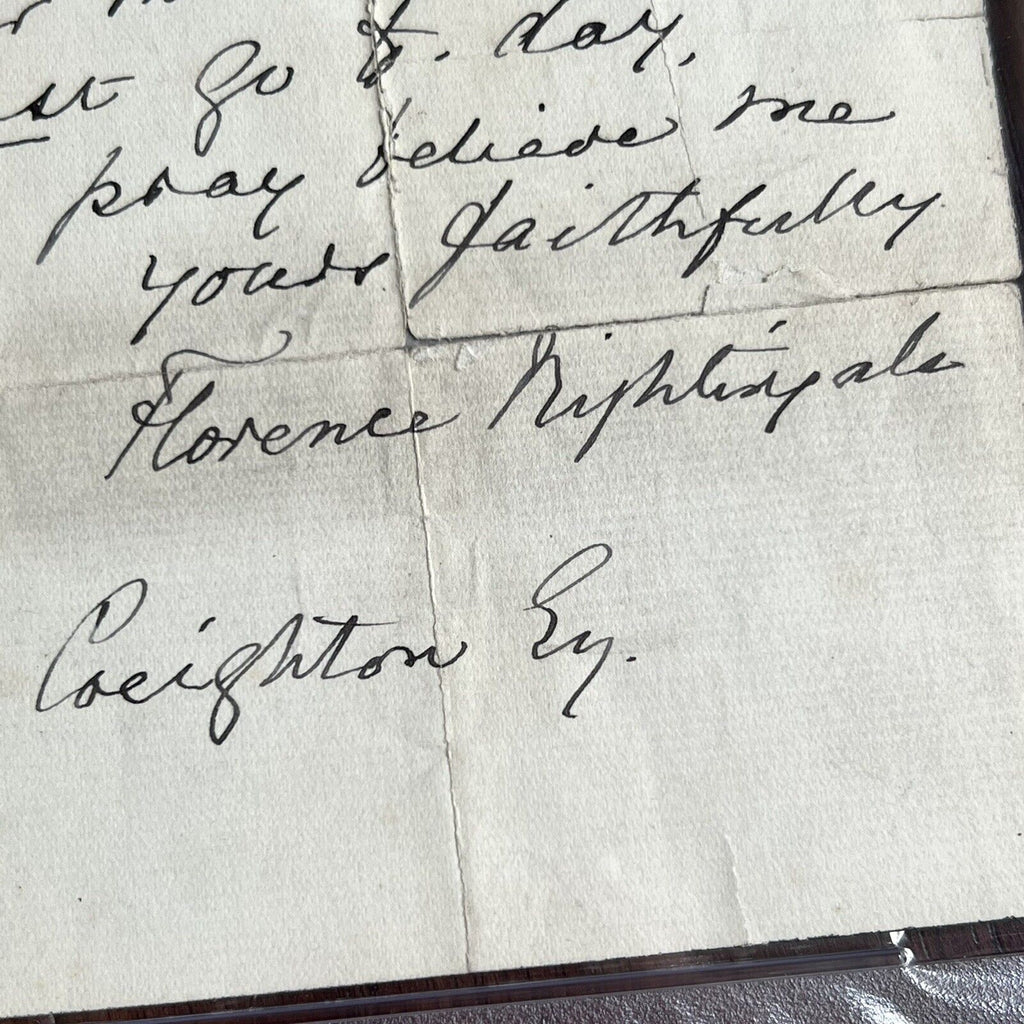 st go to. day,
pray believe me
yours faithfully
Florence Nightingale
Creighton Esq.